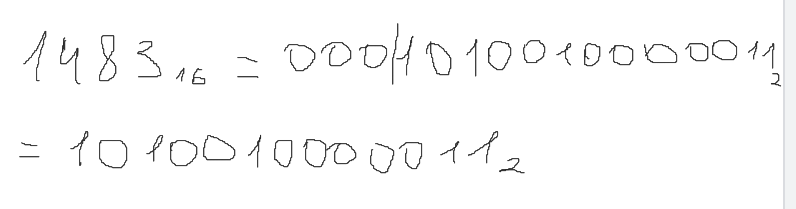 1483₁₆ = 0001010010000011₂
= 1010010000011₂